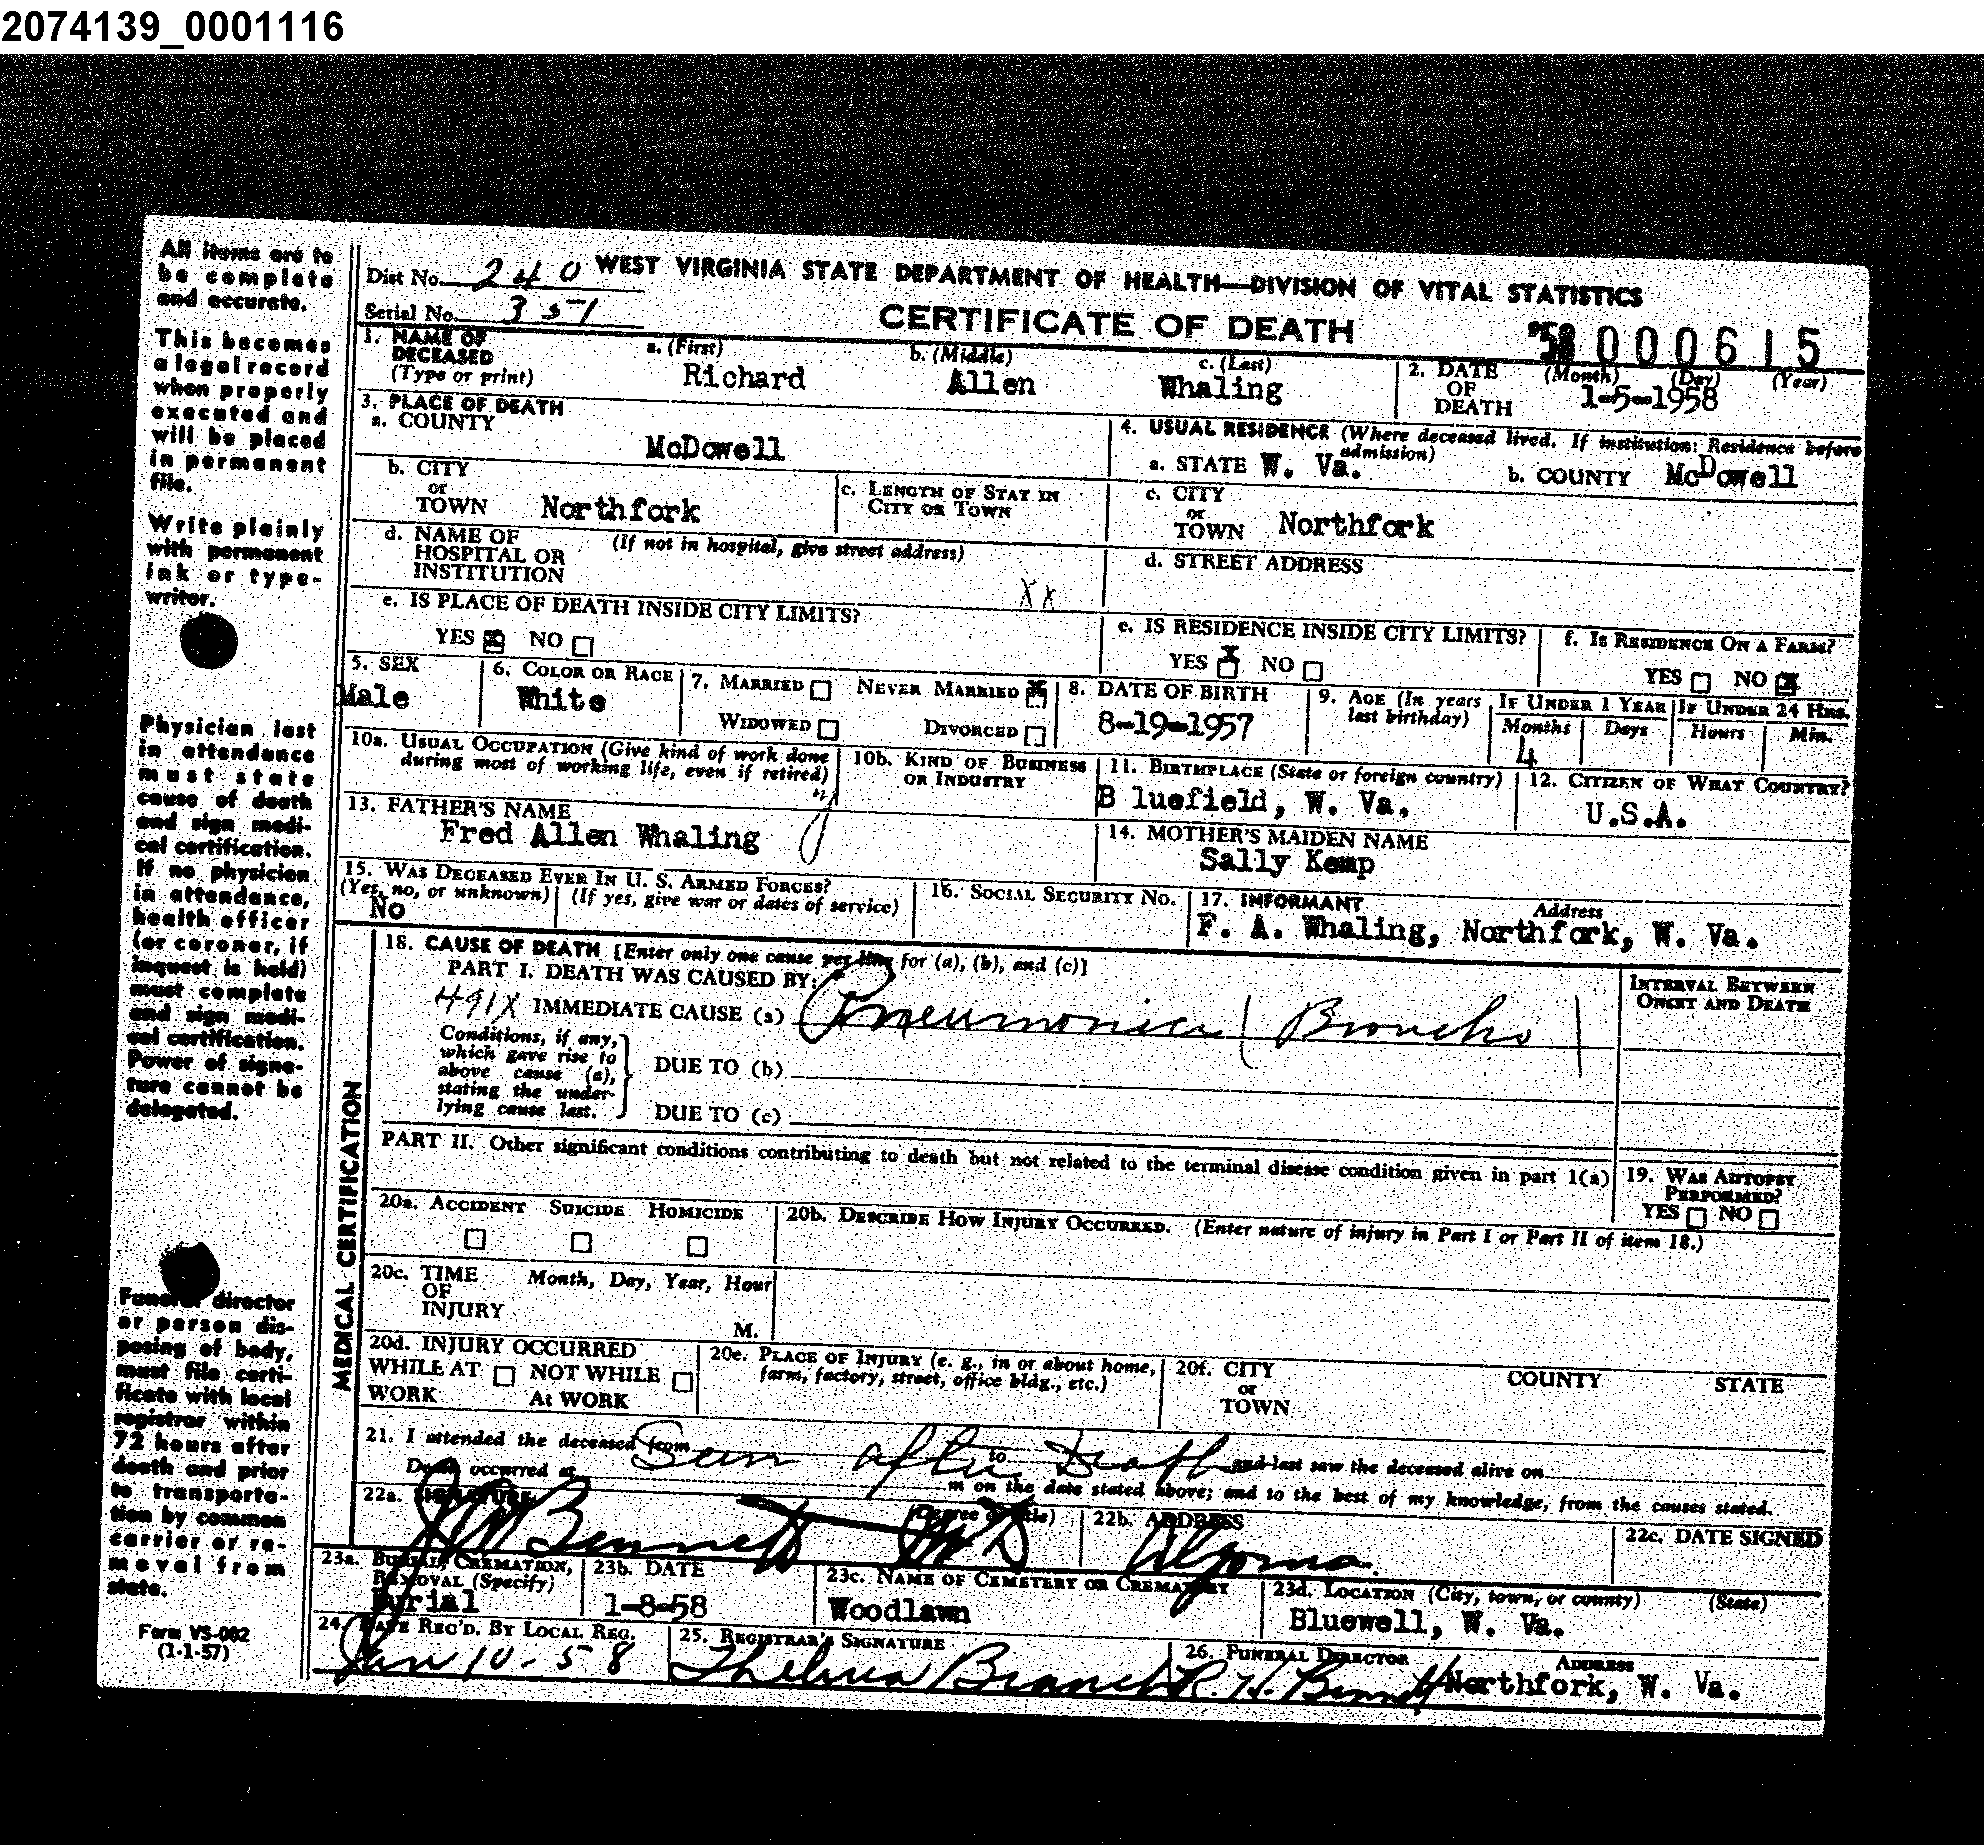 2074139_0001116
All items are to
be complete
and accurate.
This becomes
a legal record
when properly
executed and
will be placed
in permanent
file.
Write plainly
with permanent
ink or type-
writer.
Physician last
in attendance
must state
cause of death
and sign medi-
cal certification.
If no physician
in attendance,
health officer
(or coroner, if
inquest is held)
must complete
and sign medi-
cal certification.
Power of signa-
ture cannot be
delegated.
Funeral director
or person dis-
posing of body,
must file certi-
ficate with local
registrar within
72 hours after
death and prior
to transporta-
tion by common
carrier or re-
moval from
state.
Form VS-002
(1-1-57)
Dist No. 240 WEST VIRGINIA STATE DEPARTMENT OF HEALTH—DIVISION OF VITAL STATISTICS
Serial No. 351 CERTIFICATE OF DEATH 58 000615
1. NAME OF DECEASED (Type or print) a. (First) Richard b. (Middle) Allen c. (Last) Whaling
2. DATE OF DEATH (Month) (Day) (Year) 1-5-1958
3. PLACE OF DEATH
a. COUNTY McDowell
4. USUAL RESIDENCE (Where deceased lived. If institution: Residence before admission)
a. STATE W. Va. b. COUNTY McDowell
b. CITY or TOWN Northfork c. LENGTH OF STAT IN CITY OR TOWN
c. CITY or TOWN Northfork
d. NAME OF HOSPITAL OR INSTITUTION (If not in hospital, give street address) XX
d. STREET ADDRESS
e. IS PLACE OF DEATH INSIDE CITY LIMITS?
YES X NO
e. IS RESIDENCE INSIDE CITY LIMITS?
YES X NO
f. IS RESIDENCE ON A FARM?
YES NO X
5. SEX Male
6. COLOR OR RACE White
7. MARRIED NEVER MARRIED X
WIDOWED DIVORCED
8. DATE OF BIRTH 8-19-1957
9. AGE (In years last birthday) IF UNDER 1 YEAR Months 4 Days IF UNDER 24 HRS. Hours Min.
10a. USUAL OCCUPATION (Give kind of work done during most of working life, even if retired)
10b. KIND OF BUSINESS OR INDUSTRY
11. BIRTHPLACE (State or foreign country) B luefield, W. Va.
12. CITIZEN OF WHAT COUNTRY? U.S.A.
13. FATHER'S NAME Fred Allen Whaling
14. MOTHER'S MAIDEN NAME Sally Kemp
15. WAS DECEASED EVER IN U. S. ARMED FORCES?
(Yes, no, or unknown) (If yes, give war or dates of service)
No
16. SOCIAL SECURITY NO.
17. INFORMANT Address
F. A. Whaling, Northfork, W. Va.
MEDICAL CERTIFICATION
18. CAUSE OF DEATH [Enter only one cause per line for (a), (b), and (c)]
PART I. DEATH WAS CAUSED BY:
491X IMMEDIATE CAUSE (a) Pneumonia (Broncho)
INTERVAL BETWEEN ONSET AND DEATH
Conditions, if any, which gave rise to above cause (a), stating the under-lying cause last.
DUE TO (b)
DUE TO (c)
PART II. Other significant conditions contributing to death but not related to the terminal disease condition given in part 1(a)
19. WAS AUTOPSY PERFORMED?
YES NO
20a. ACCIDENT SUICIDE HOMICIDE
20b. DESCRIBE HOW INJURY OCCURRED. (Enter nature of injury in Part I or Part II of item 18.)
20c. TIME OF INJURY Month, Day, Year, Hour M.
20d. INJURY OCCURRED
WHILE AT WORK NOT WHILE At WORK
20e. PLACE OF INJURY (e. g., in or about home, farm, factory, street, office bldg., etc.)
20f. CITY or TOWN COUNTY STATE
21. I attended the deceased from Seen after to Death and last saw the deceased alive on
Death occurred at m on the date stated above; and to the best of my knowledge, from the causes stated.
22a. SIGNATURE Bennett MD (Degree or title)
22b. ADDRESS Algoma
22c. DATE SIGNED
23a. BURIAL, CREMATION, REMOVAL (Specify) Burial
23b. DATE 1-8-58
23c. NAME OF CEMETERY OR CREMATORY Woodlawn
23d. LOCATION (City, town, or county) (State) Bluewell, W. Va.
24. DATE REC'D. BY LOCAL REG. Jan 10-58
25. REGISTRAR'S SIGNATURE Thelma Branch
26. FUNERAL DIRECTOR ADDRESS
R. H. Bennett Northfork, W. Va.